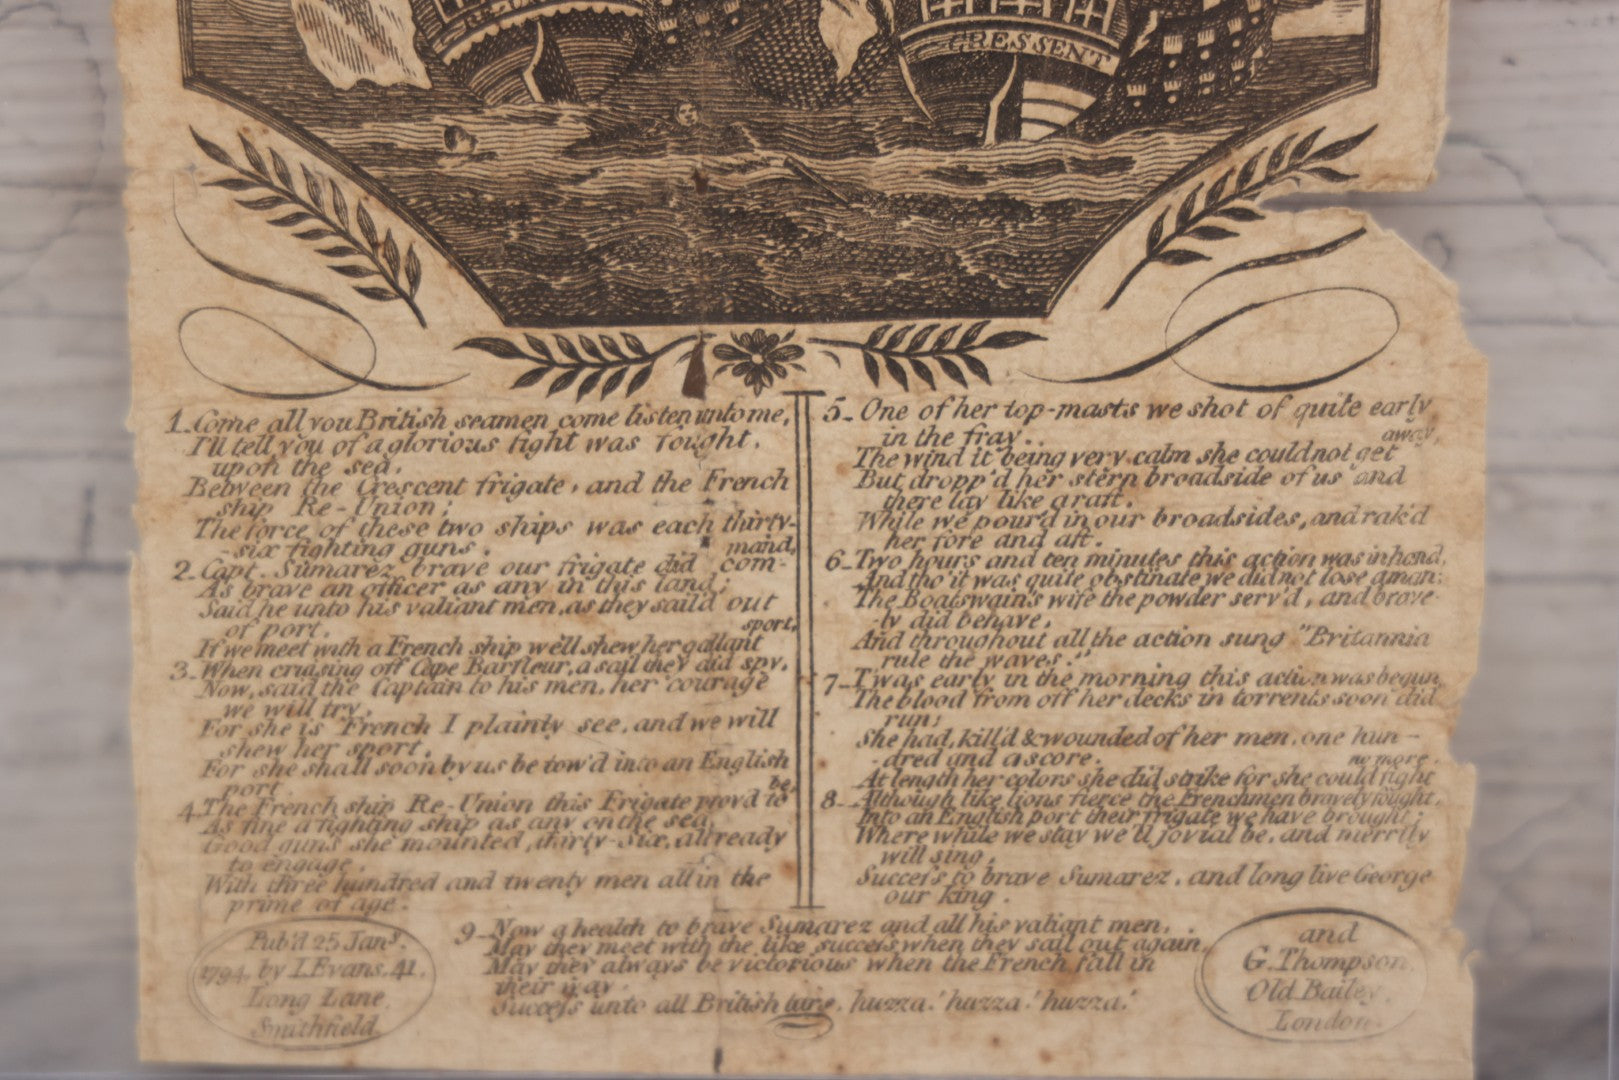 CRESSENT
1. Come all you British seamen come listen unto me,
I'll tell you of a glorious fight was fought.
upon the sea.
Between the Crescent frigate, and the French
ship Re-Union;
The force of these two ships was each thirty-
-six fighting guns.
mand,
2. Capt. Sumarez brave our frigate did com-
As brave an officer as any in this land;
Said he unto his valiant men, as they sail'd out
of port.
sport,
If we meet with a French ship we'll shew her gallant
3. When cruising off Cape Barfleur, a sail they did spy,
Now, said the Captain to his men, her courage
we will try.
For she is French I plainly see, and we will
shew her sport.
For she shall soon by us be tow'd into an English
port.
be,
4. The French ship Re-Union this Frigate prov'd to
As fine a fighting ship as any on the sea,
Good guns she mounted, thirty-six, allready
to engage.
With three hundred and twenty men all in the
prime of age.
5. One of her top-masts we shot of quite early
in the fray..
away,
The wind it being very calm she could not get
But dropp'd her stern broadside of us and
there lay like a raft.
While we pour'd in our broadsides, and rak'd
her fore and aft.
6. Two hours and ten minutes this action was in hand,
And tho' it was quite obstinate we did not lose a man:
The Boatswain's wife the powder serv'd, and brave-
-ly did behave,
And throughout all the action sung "Britannia
rule the waves."
7. Twas early in the morning this action was begun,
The blood from off her decks in torrents soon did
run;
She had, kill'd & wounded of her men, one hun-
-dred and a score.
no more.
At length her colors she did strike for she could fight
8. Although like lions fierce the Frenchmen bravely fought,
Into an English port their frigate we have brought;
Where while we stay we'll jovial be, and merrily
will sing,
Succeſs to brave Sumarez, and long live George
our king.
9. Now a health to brave Sumarez and all his valiant men,
May they meet with the like succeſs when they sail out again,
May they always be victorious when the French fall in
their way.
Succeſs unto all British tars, huzza! huzza! huzza!
Pub'd 25 Jans.
1794, by I. Evans, 41,
Long Lane,
Smithfield,
and
G. Thompson
Old Bailey
London.